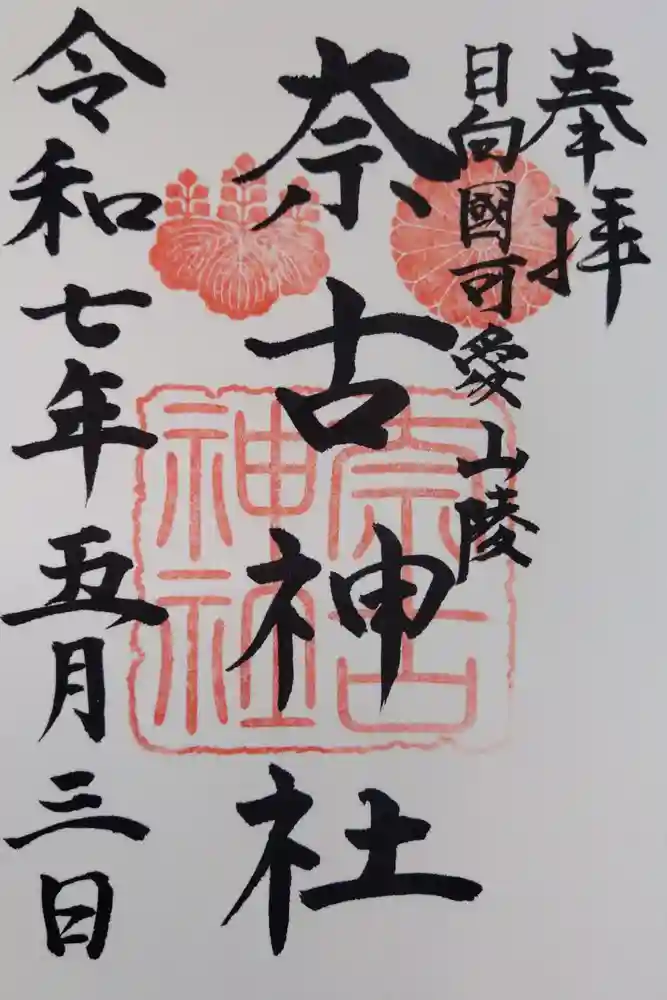 奉拝
日向國可愛山陵
奈古神社
奈古神社
令和七年五月三日